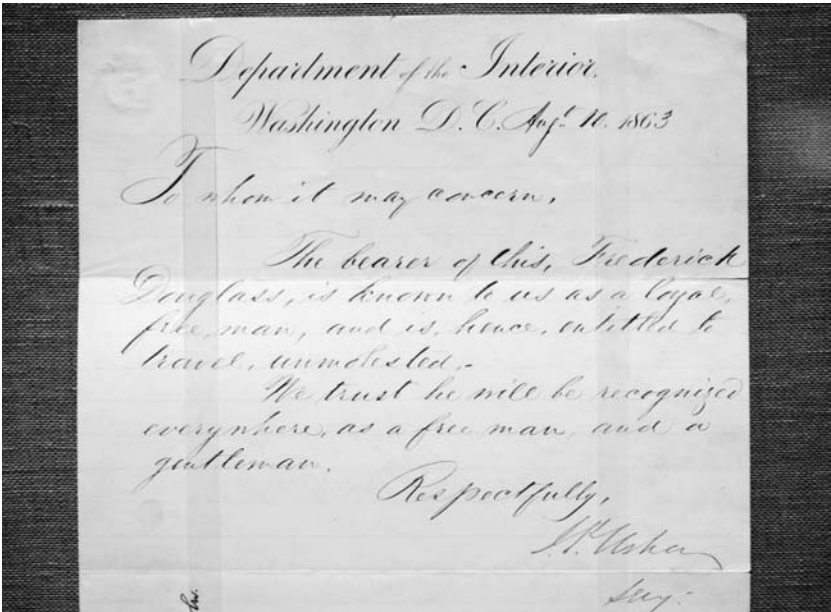 Department of the Interior.
Washington D. C. Augt. 10. 1863
To whom it may concern,
The bearer of this, Frederick
Douglass, is known to us as a loyal,
free, man, and is, hence, entitled to
travel, unmolested,-
We trust he will be recognized
everywhere, as a free man, and a
gentleman.
Respectfully,
J. P. Usher
Secy.